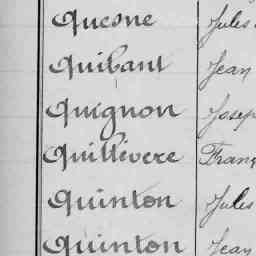 Quesne Jules
Quibant Jean
Quignon Josep
Quillévéré Franç
Quinton Jules
Quinton Jean